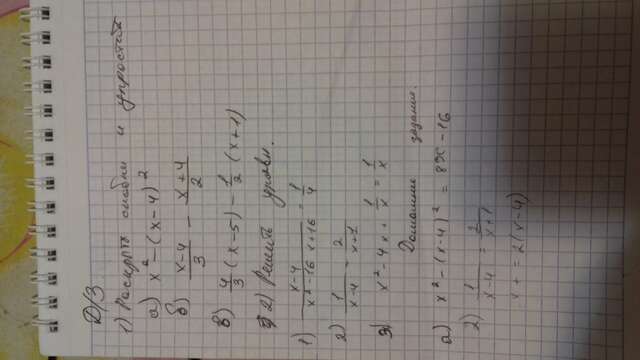 Д/З
1) Раскрыть скобки и упростить
а) x² - (x-4)²
б) (x-4)/3 - (x+4)/2
в) 4/3 (x-5) - 1/2 (x+1)
2) Решить уравн.
1) (x-4)/(x²-16 x+16) = 1/4
2) 1/(x-4) = 2/(x+1)
3) x² - 4x + 1/x = 1/x
Домашнее задание.
а) x² - (x-4)² = 8x - 16
2) 1/(x-4) = 2/(x+1)
x + = 2(x-4)